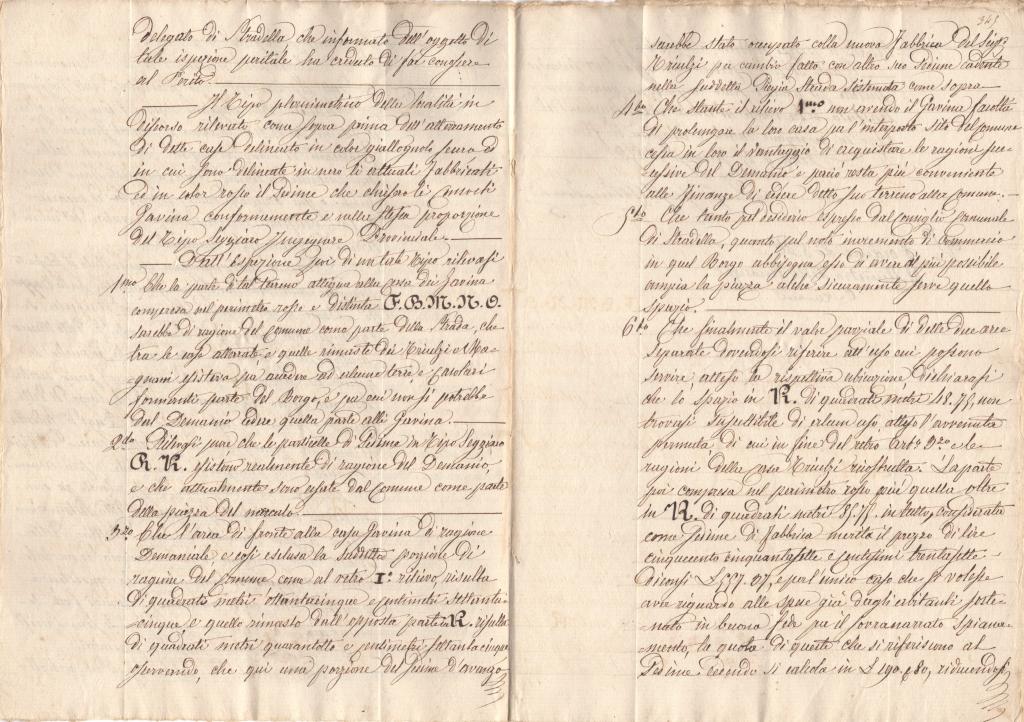 delegato di Stradella che informato dell'oggetto di
tale ispezione peritale ha creduto di far congiure
al Perito.
Il Tipo planimetrico della località in
discorso rilevato come sopra prima dell'atterramento
di dette case delineato in color giallognolo scuro ed
in cui sono delineate in nero li attuali Fabbricati
ed in color rosso il Sedime che chiesero li
Gavina conformemente e nella stessa proporzione
del Tipo Seggiaro Ingegnere Provinciale.
Dall'Ispezione poi di un tale Tipo rilevasi
1mo Che la parte di tal terreno attigua alla casa dei Gavina
compresa nel perimetro rosso e distinta F. G. M. N. O.
sarebbe di ragione del comune come parte della Strada, che
tra le case atterrate e quelle rimaste dei Triulzi e Ma-
gnani esisteva per accedere ad alcune terre e Casolari
formanti parte del Borgo, e per cui non si potrebbe
dal Demanio cedere quella parte alli Gavina.
2do Rilevasi pure che le particelle di Sedime in Tipo Seggiaro
R. K. esistono realmente di ragione del Demanio,
e che attualmente sono usate dal Comune come parte
della piazza del mercato.
3zo Che l'area di fronte alla casa Gavina di ragione
Demaniale e così esclusa la suddetta porzione di
ragione del comune come al retro 1° rilievo, risulta
di quadrati metri ottantacinque e centimetri settanta-
cinque e quello rimasto dall'opposta parte K. risulta
di quadrati metri quarantotto e centimetri settantacinque
osservando, che qui una porzione del Sedime d'avanzo
345
sarebbe stato occupato colla nuova Fabbrica del Sigr
Triulzi per cambio fatto con altro suo Sedime cadente
nella suddetta Regia Strada sistemata come sopra
4to Che stante il rilievo 1mo non avendo il Gavina facoltà
di prolungare la loro casa pel l'interposto sito del comune
cessa in loro il vantaggio di acquistare le ragioni suc-
cessive del Demanio e perciò resta più conveniente
alle Finanze di cedere detto suo terreno alla Comune.
5to Che tanto pel desiderio espresso dal Consiglio Comunale
di Stradella, quanto pel noto incremento di Commercio
in quel Borgo abbisogna esso di avere il più possibile
ampia la piazza, al che sicuramente serve quello
spazio.
6to Che finalmente il valore parziale di dette due aree
separate dovendosi riferire all'uso cui possono
servire, atteso la rispettiva ubicazione, dichiarasi
che lo spazio in K. di quadrati metri 48.75, non
trovasi suscettibile di alcun uso, atteso l'avvenuta
permuta, di cui in fine del retro Art° 3zo e le
ragioni della casa Triulzi ricostrutta. La parte
poi compresa nel perimetro rosso più quella oltre
in R. di quadrati metri 85.75 in tutto, considerata
come Sedime di Fabbrica merita il prezzo di lire
cinquecento cinquantasette e centesimi trentasette
diconsi L 557. 37, e pel l'unico caso che si volesse
aver riguardo alle spese già dagli esibitanti soste-
nute in buona fede per il sovranarrato spiana-
mento, la quota di queste che si riferiscono al
Sedime cedendo si calcola in L 190, 80, riducendosi